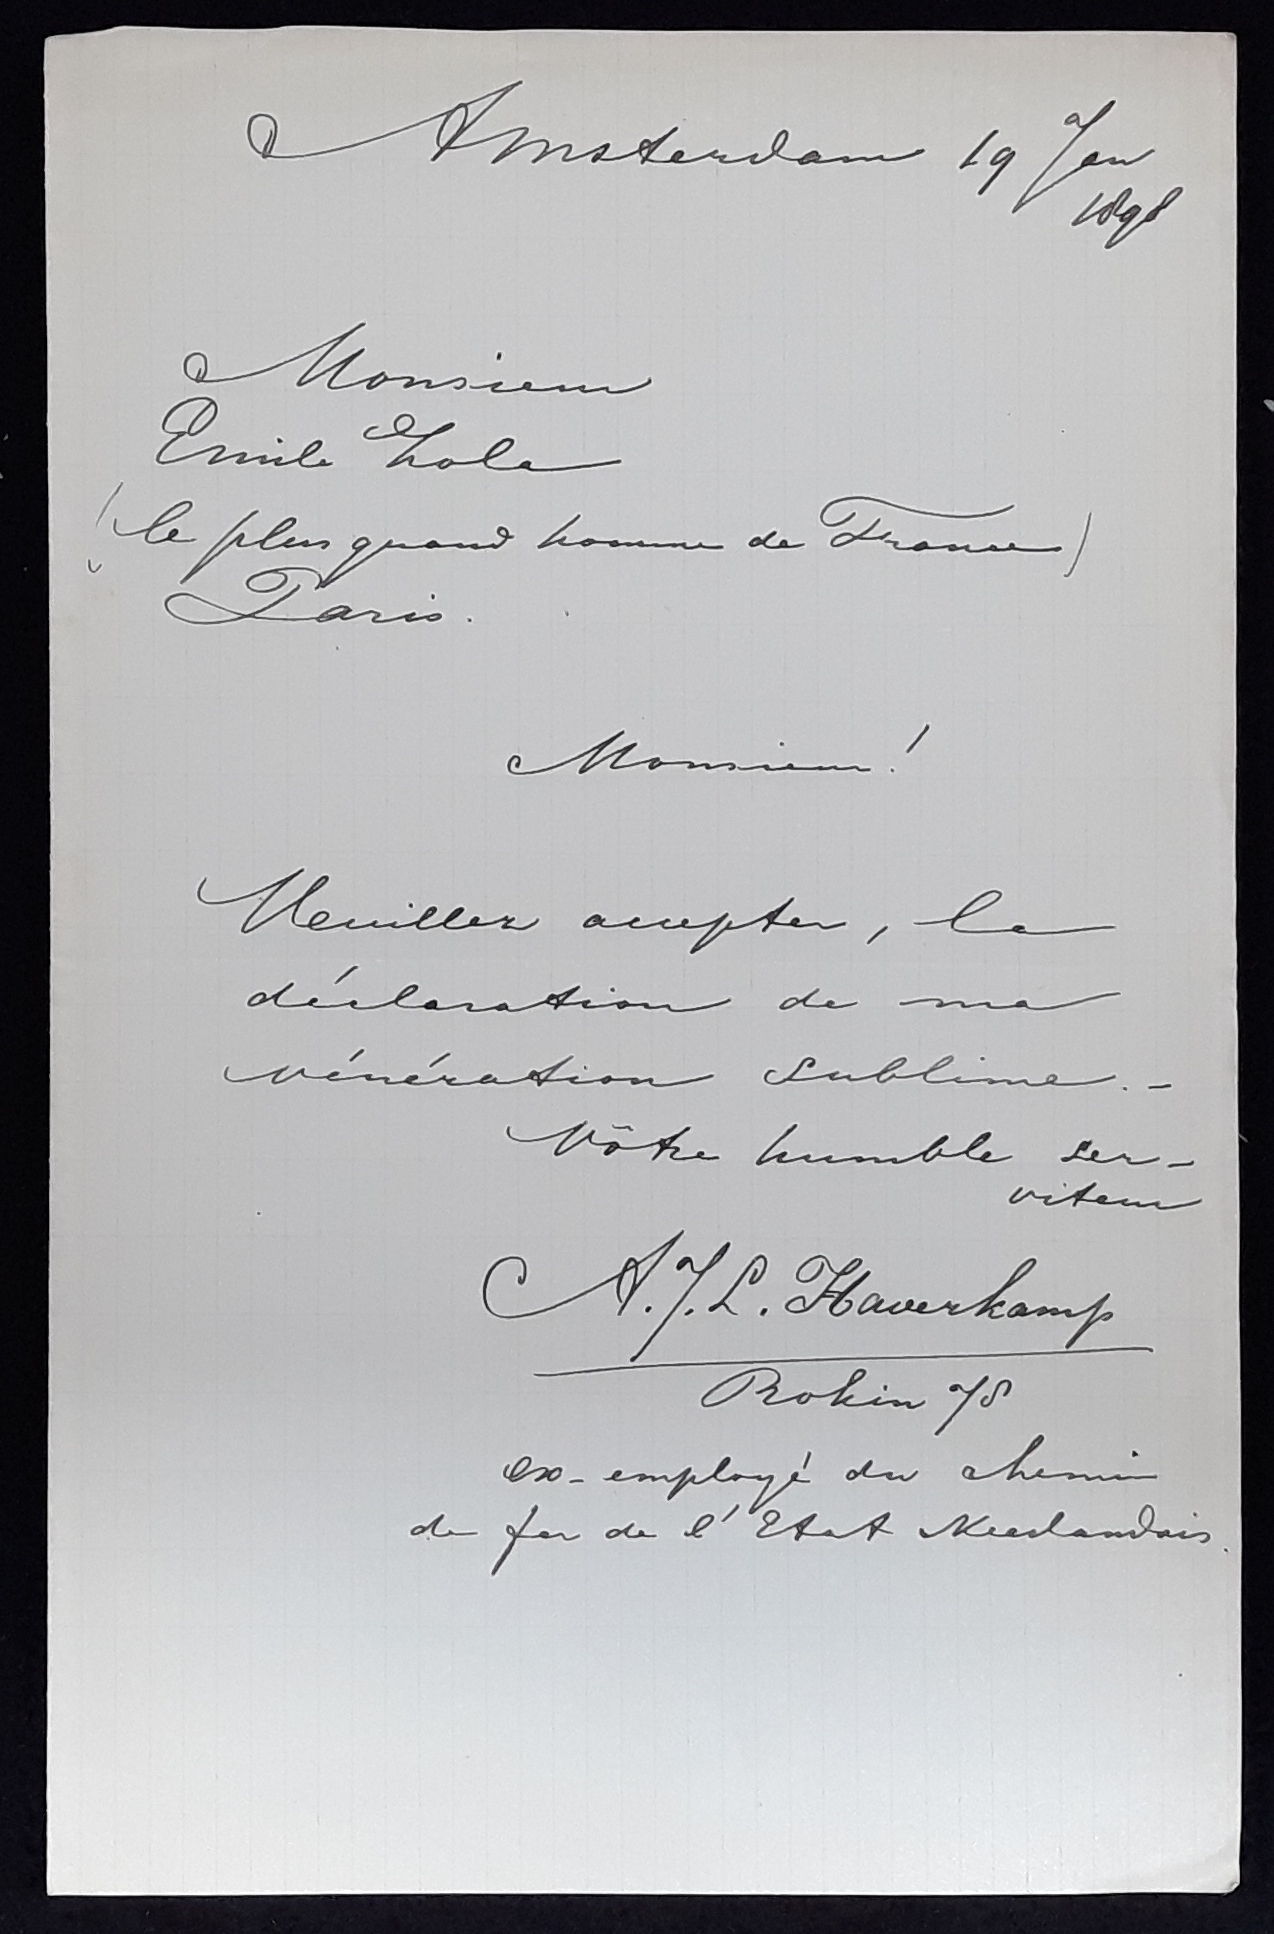 Amsterdam 19 Jan
1898
Monsieur
Emile Zola
(le plus grand homme de France)
Paris.
Monsieur!
Veuillez accepter, la
déclaration de ma
vénération sublime. -
Vôtre humble ser-
viteur
A. J. L. Haverkamp
Rokin 78
ex-employé du chemin
de fer de l'Etat Neerlandais.